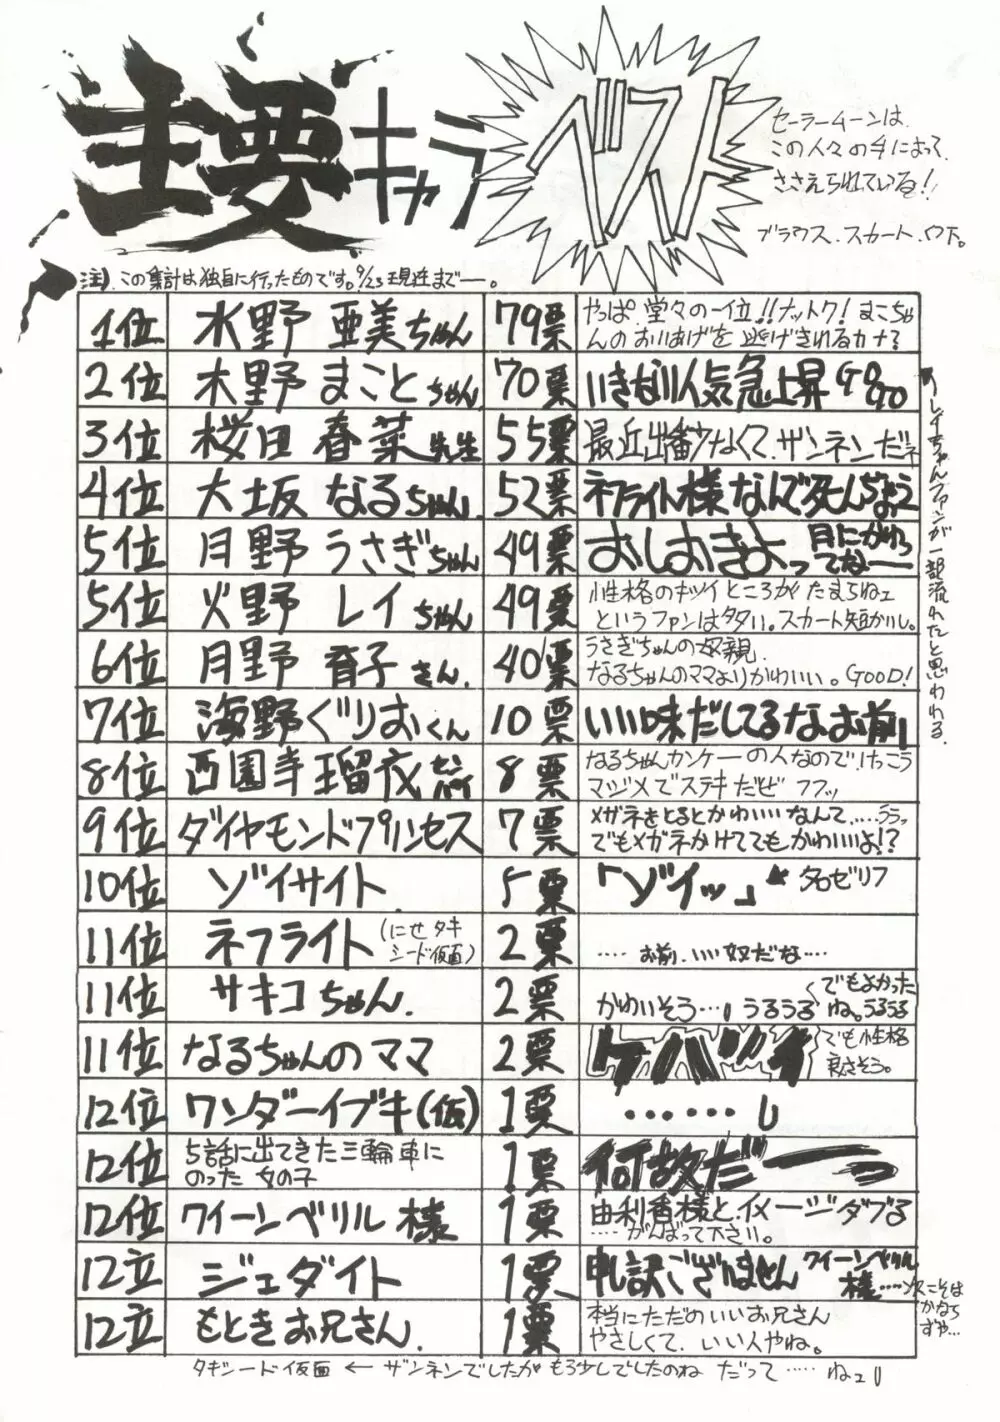 主要キャラ
ベスト
セーラームーンは、
この人々の手によって、
ささえられている!
ブラウス、スカート、以下。
注)、この集計は独自に行ったものです。9/23現在まで—。
1位 水野 亜美ちゃん 79票 やっぱ 堂々の一位!!ナットク! まこちゃ
んのおいあげを 逃げきれるカナ?
2位 木野 まことちゃん 70票 いきなり人気急上昇 GO GO
3位 桜田 春菜先生 55票 最近出番少なくて、ザンネンだネ
4位 大坂 なるちゃん、 52票 ネフライト様なんで死んぢゃう
5位 月野 うさぎちゃん 49票 おしおきよっ 月にかわっ
てなー
5位 火野 レイちゃん 49票 性格のキツイところがたまらねェ
というファンは多い。スカート短かいし。
6位 月野 育子さん、 40票 うさぎちゃんの母親、
なるちゃんのママよりかわいい。GOOD!
7位 海野ぐりおくん 10票 いい味だしてるなお前
8位 西園寺瑠夜 8票 なるちゃんカンケーの人なので!けっこう
マジメでステキだぜ フフッ
9位 ダイヤモンドプリンセス 7票 メガネをとるとかわいいなんて、....ララッ
でもメガネかけててもかわいいよ!?
10位 ゾイサイト、 5票 「ゾイッ」 ★ 名ゼリフ
11位 ネフライト (にせタキ
シード仮面) 2票 ....お前、いい奴だな....
11位 サキコちゃん、 2票 かわいそう...、うるうる でもよかった
ね。うるうる
11位 なるちゃんのママ 2票 ケバツイ でも性格
良さそう。
12位 ワンダーイブキ(仮) 1票 ......
12位 5話に出てきた三輪車に
のった女の子 1票 何故だーっ
12位 クイーンベリル様 1票 由利香様とイメージダブる
....がんばって下さい。
12位 ジェダイト 1票 申し訳ございません クイーンベリル
様....次こそは
かならず
ずや...
12位 もときお兄さん、 1票 本当にただのいいお兄さん
やさしくて、いい人やね。
レイちゃんファンが一部流れたと思われる、
タキシード仮面 ← ザンネンでしたが もう少しでしたのね だって .... ねェ